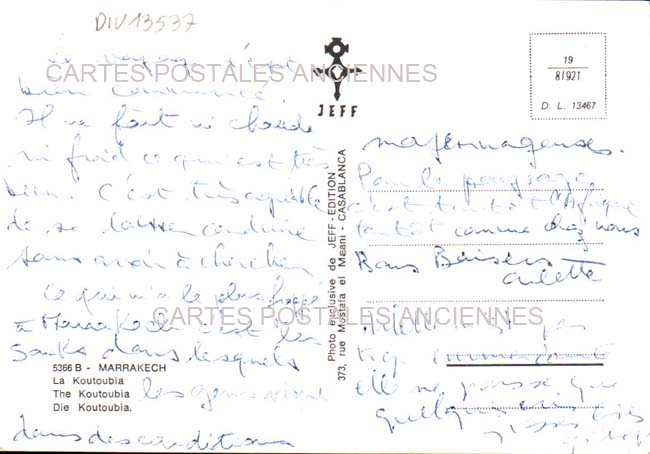 DIV 13537
Le voyage s'est
bien commencé
Il ne fait ni chaud
ni froid ce qui est très
bien. C'est très agréable
de se laisser conduire
sans avoir à chercher
ce qui m'a le plus
à Marrakech c'est les
Souks dans lesquels
les gens vivent
dans des conditions
CARTES POSTALES ANCIENNES
CARTES POSTALES ANCIENNES
5366 B - MARRAKECH
La Koutoubia
The Koutoubia
Die Koutoubia.
JEFF
Photo exclusive de JEFF-EDITION
373, rue Mostafa el Maani - CASABLANCA
19
81921
D. L. 13467
moyennageuses.
Pour le paysage
c'est tantôt l'Afrique
tantôt comme chez nous
Bons Baisers
Arlette
n'est pas
trop
elle ne pense que
quelques